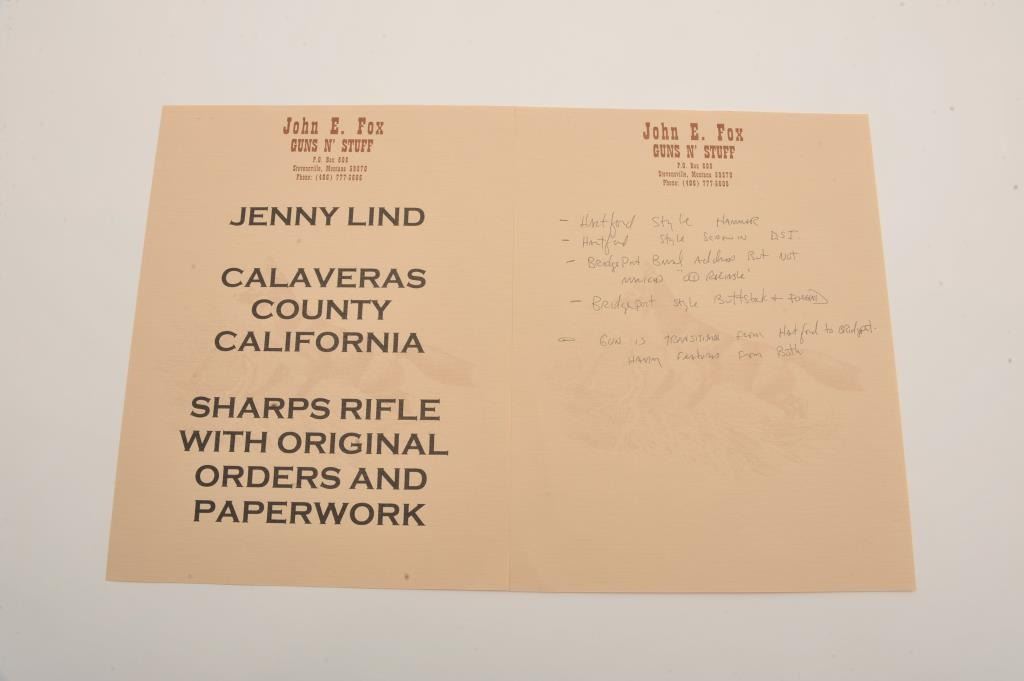 John E. Fox
GUNS N' STUFF
P.O. Box
Stevensville, Montana 59870
Phone: (406) 777-
JENNY LIND
CALAVERAS
COUNTY
CALIFORNIA
SHARPS RIFLE
WITH ORIGINAL
ORDERS AND
PAPERWORK
John E. Fox
GUNS N' STUFF
P.O. Box
Stevensville, Montana 59870
Phone: (406) 777-
- Hartford Style HAMMER
- Hartford Style Screw in
- BridgePort Barrel Address But Not
MARKED "OLD RELIABLE"
- Bridgeport style Buttstock +
- GUN is TRANSITIONAL From Hartford to Bridgeport.
HAVING Features From Both